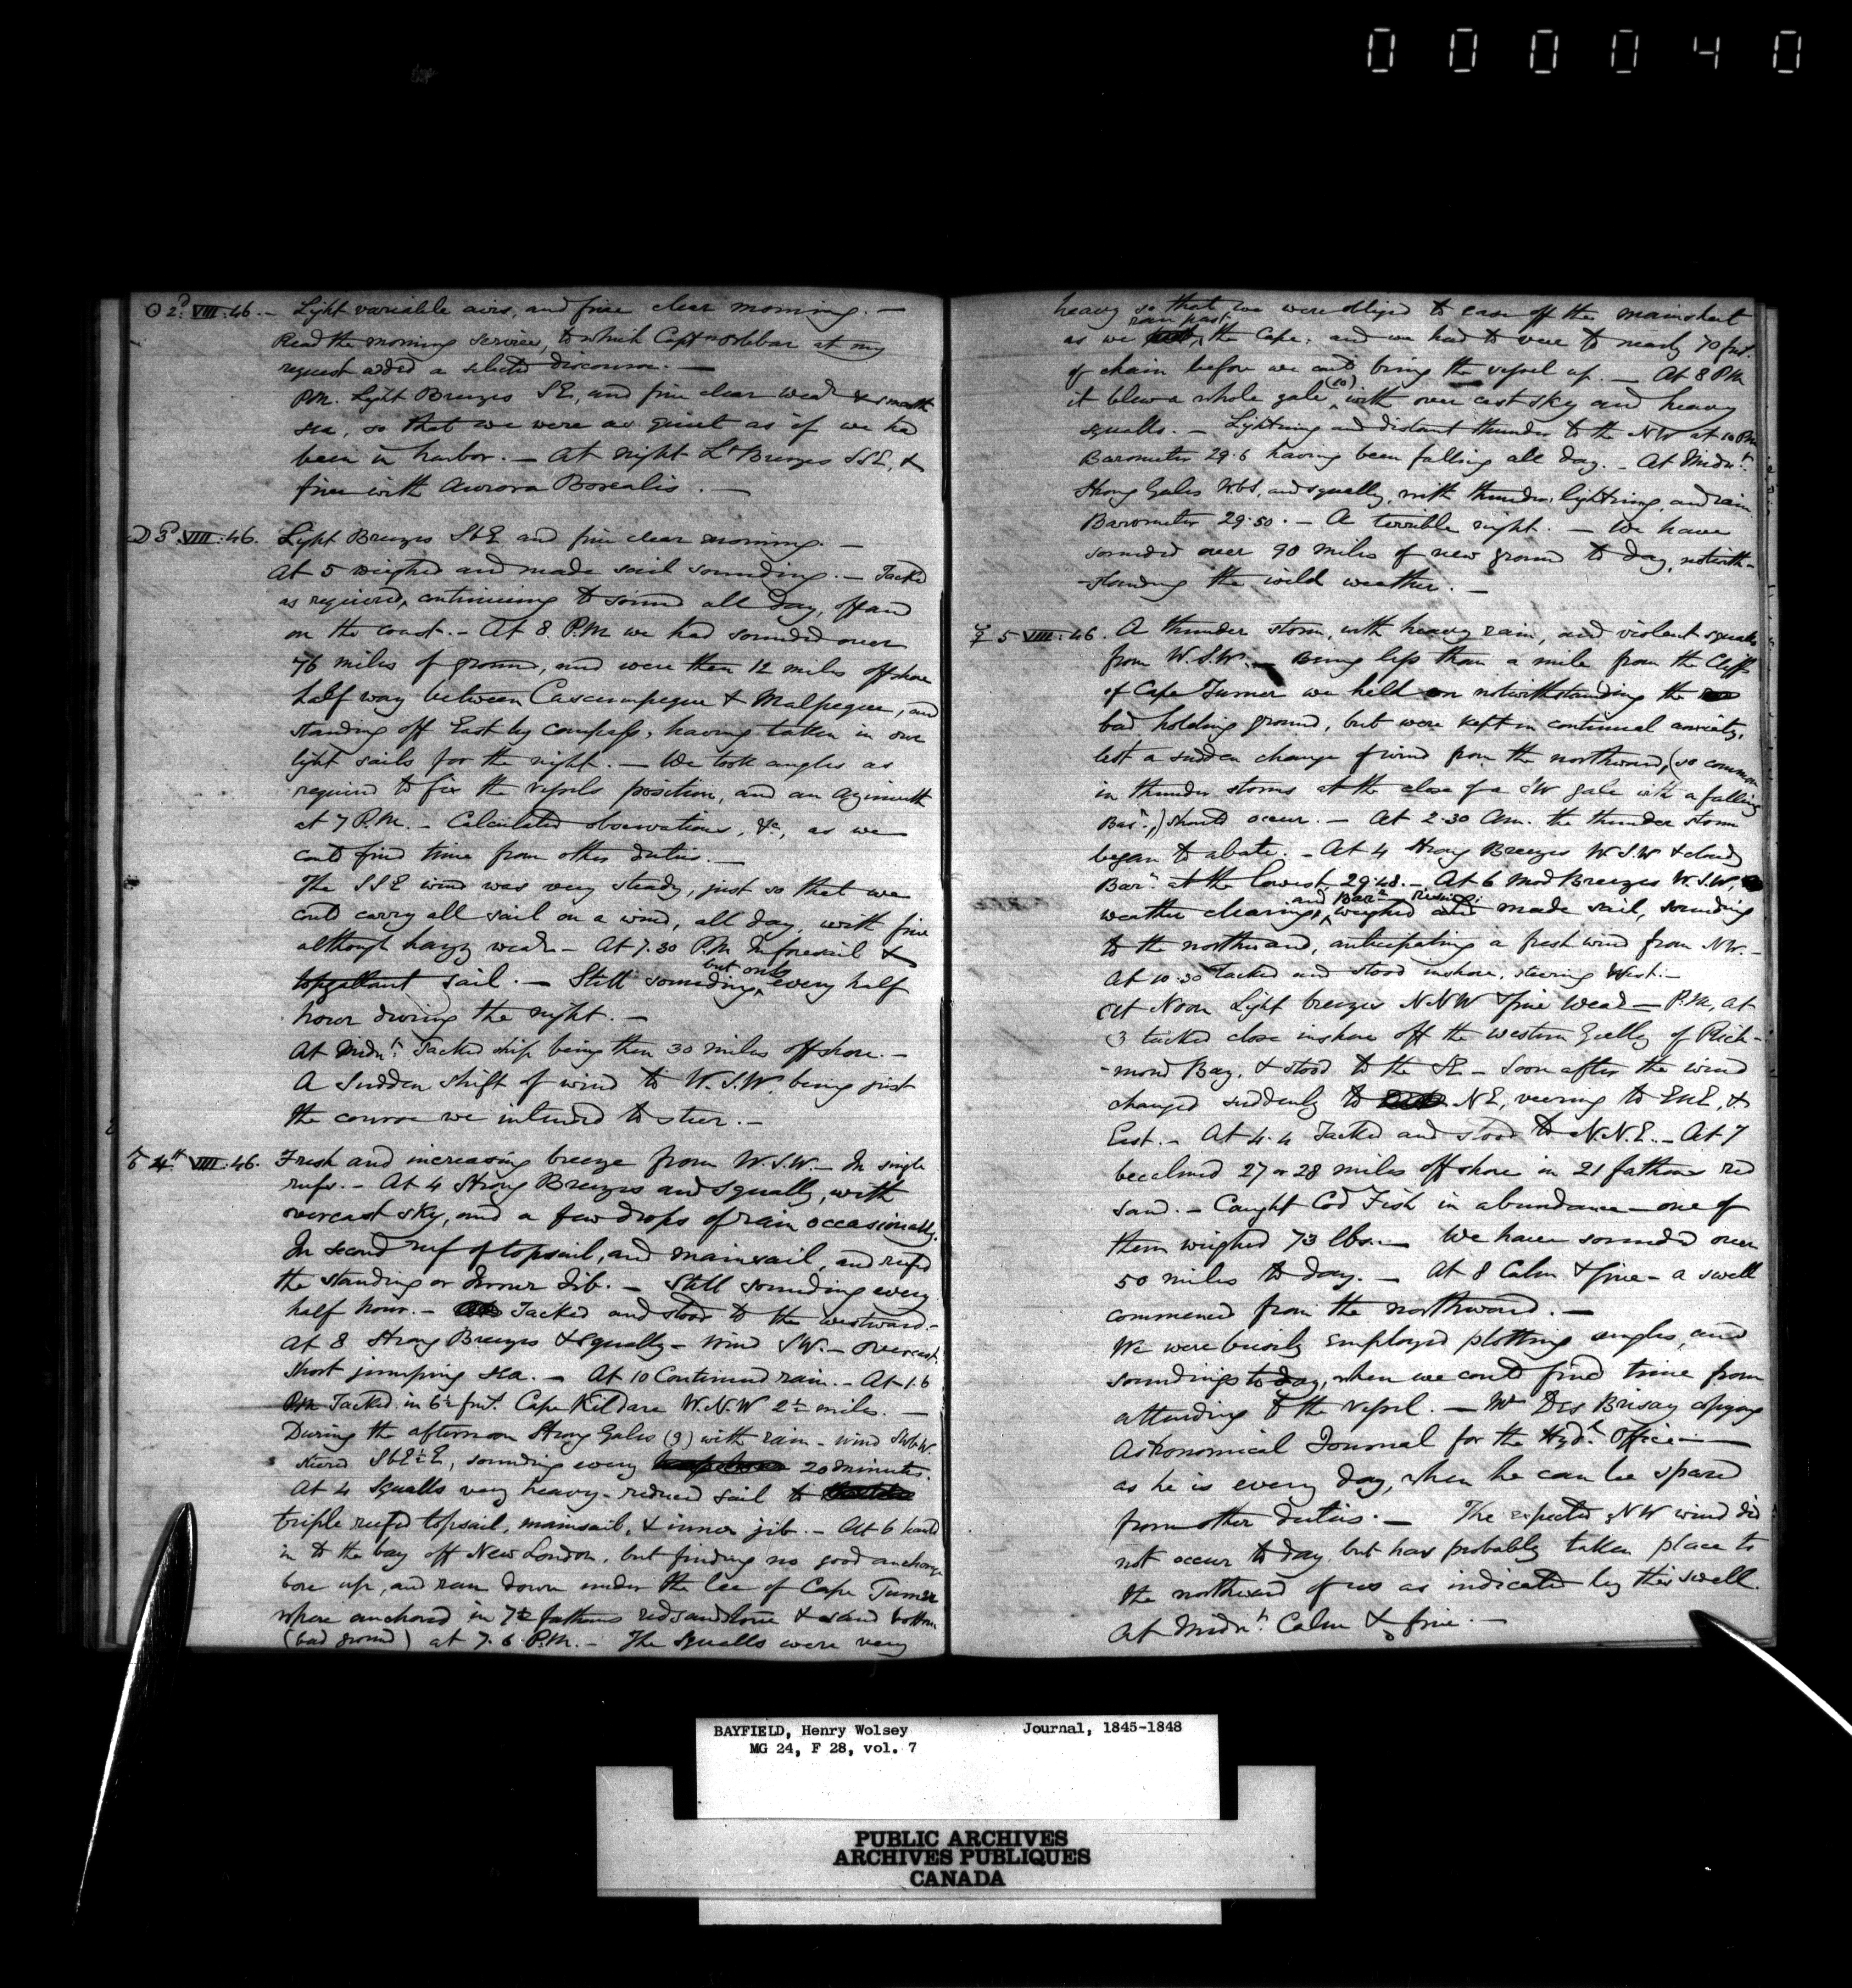 000040
☉ 2d VIII. 46. – Light variable airs, and fine clear morning. –
Read the morning service, to which Captn Orlebar at my
request added a selected discourse. –
P.M. Light Breezes SE, and fine clear weathr & smooth
sea, so that we were as quiet as if we had
been in harbor. – At night Lt Breezes SSE, &
fine with Aurora Borealis. –
☽ 3d VIII. 46. Light Breezes SbE and fine clear morning. –
At 5 weighed and made sail sounding. – Tacked
as required, continuing to sound all day, off and
on the coast. – At 8 P.M. we had sounded over
76 miles of ground, and were then 12 miles off shore
half way between Cascumpeque & Malpeque, and
standing off East by compass, having taken in our
light sails for the night. – We took angles as
required to fix the vessels position, and an azimuth
at 7 P.M. – Calculated observations, &c, as we
could find time from other duties. –
The SSE wind was very steady, just so that we
could carry all sail on a wind, all day, with fine
although hazy weathr – At 7.30 P.M. In foresail &
topgallant sail. – Still sounding, but only every half
hour during the night. –
At Midnt Tacked ship being then 30 miles off shore. –
A Sudden shift of wind to W.S.W. being just
the course we intended to steer. –
♂ 4th VIII. 46. Fresh and increasing breeze from W.S.W. – In single
reefs. – At 4 Strong Breezes and squally, with
overcast sky, and a few drops of rain occasionally.
In second reef of topsail, and mainsail, and reefed
the standing or Inner Jib. – Still sounding every
half hour. – Tacked and stood to the westward. –
At 8 Strong Breezes & squally – Wind SW. – Overcast.
Short jumping sea. – At 10 Continued rain. – At 1.6
PM Tacked in 6½ fms. Cape Kildare W.N.W 2½ miles. –
During the afternoon Strong Gales (9) with rain – wind SWbW.
steered SbE½E, sounding every 20 minutes.
At 4 Squalls very heavy – reduced sail to
triple reefed topsail, mainsail, & inner jib. – At 6 hauled
in to the bay off New London, but finding no good anchorage
bore up, and ran down under the lee of Cape Turner
where anchored in 7½ fathoms red sandstone & sand bottom
(bad ground) at 7.6 P.M. – The squalls were very
heavy so that we were obliged to ease off the mainsheet
as we ran past the Cape, and we had to veer to nearly 70 fms.
of chain before we could bring the vessel up. – At 8 PM
it blew a whole gale (10) with over cast sky and heavy
squalls. – Lightning and distant thunder to the NW at 10 PM
Barometer 29.6 having been falling all day. – At Midnt.
Strong Gales WbS, and squally, with thunder, lightning, and rain.
Barometer 29.50. – A terrible night. – We have
sounded over 90 miles of new ground to day, notwith-
-standing the wild weather. –
☿ 5 VIII. 46. A thunder storm, with heavy rain, and violent squalls
from W.S.W. – Being less than a mile from the Cliffs
of Cape Turner we held on notwithstanding the
bad holding ground, but were kept in continual anxiety,
lest a sudden change of wind from the northward, (so common
in thunder storms at the close of a SW gale with a falling
Barr.,) should occur. – At 2.30 Am. the thunder storm
began to abate. – At 4 Strong Breezes W.S.W & cloudy
Barr. at the lowest 29.48. – At 6 Mod Breezes W.S.W,
weather clearing, and Barr rising: weighed and made sail, sounding
to the northward, anticipating a fresh wind from NW. –
At 10.30 Tacked and stood inshore, steering West. –
At Noon Light breezes NNW & fine Weathr – P.M, at
3 tacked close inshore off the western Gully of Rich-
-mond Bay, & stood to the SE – Soon after the wind
changed suddenly to NE, veering to ENE, &
East. – At 4.4 Tacked and stood to N.N.E. – At 7
becalmed 27 or 28 miles off shore in 21 fathoms red
sand. – Caught Cod Fish in abundance – one of
them weighed 73 lbs. – We have sounded over
50 miles to day. – At 8 Calm & fine – a swell
commenced from the northward. –
We were busily employed plotting angles, and
soundings to day, when we could find time from
attending to the vessel. – Mr Des Brisay copying
Astronomical Journal for the Hydc. Office –
as he is every day, when he can be spared
from other duties. – The expected NW wind did
not occur to day but has probably taken place to
the northward of us as indicated by this swell.
At Midnt. Calm & fine. –
BAYFIELD, Henry Wolsey Journal, 1845-1848
MG 24, F 28, vol. 7
PUBLIC ARCHIVES
ARCHIVES PUBLIQUES
CANADA